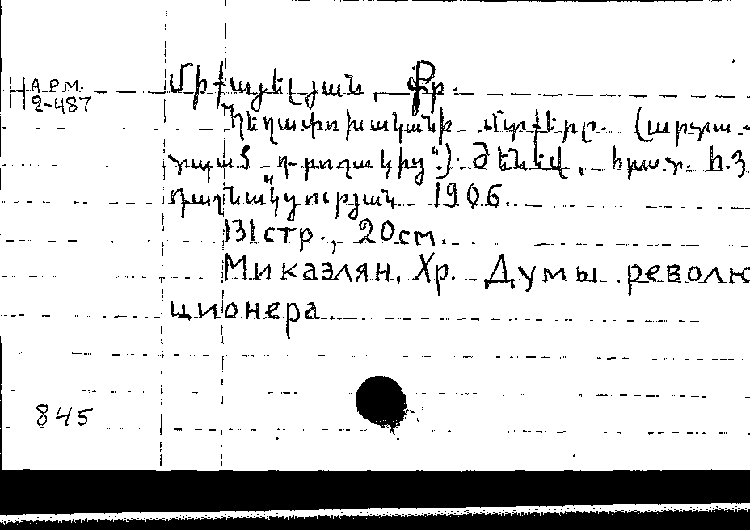 АРМ.
2-487
Միքայելյան, Քր.
Հեղափոխականի մտքերը. (արտա-
տպած "Դրոշակից".) Ժենեվ, հրատ. Հ.Յ.
Դաշնակցության 1906.
131 стр., 20см.
Миказлян, Хр. Думы револю
ционера.
845